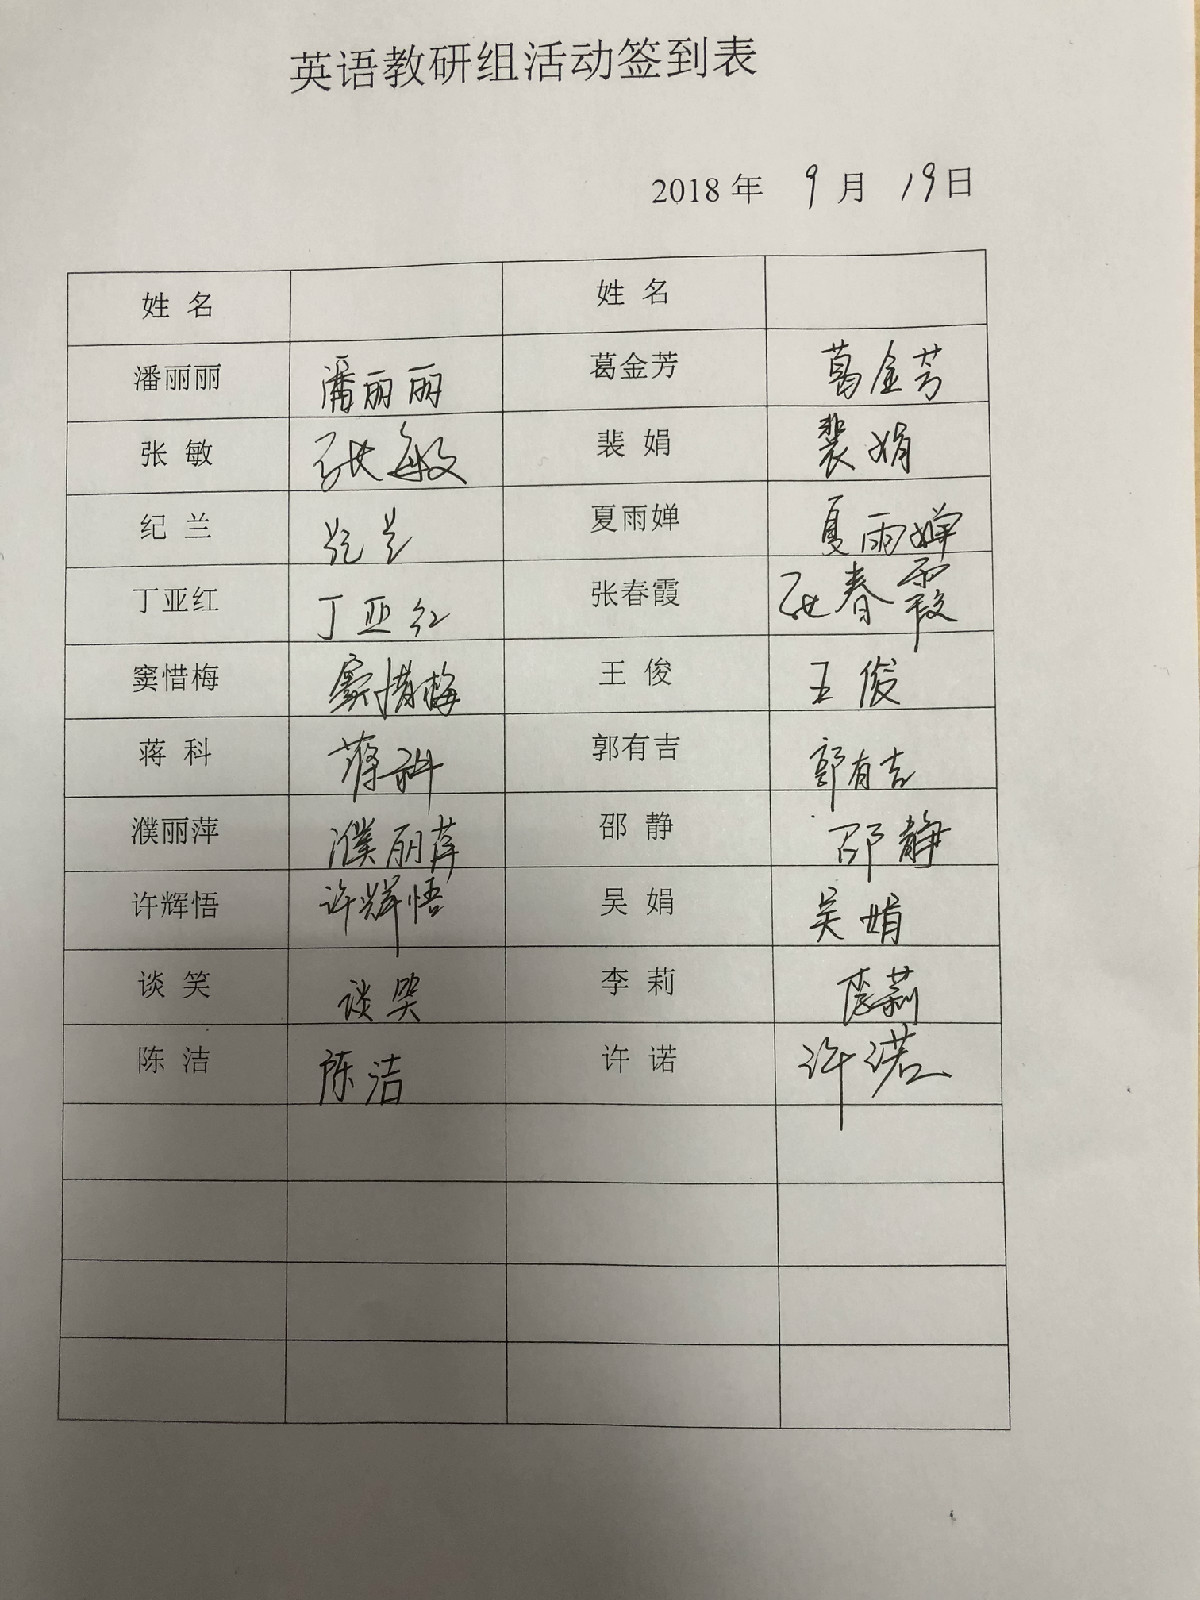 英语教研组活动签到表
2018 年 9 月 19 日
姓 名 姓 名
潘丽丽 潘丽丽 葛金芳 葛金芳
张 敏 张敏 裴 娟 裴娟
纪 兰 纪兰 夏雨婵 夏雨婵
丁亚红 丁亚红 张春霞 张春霞
窦惜梅 窦惜梅 王 俊 王俊
蒋 科 蒋科 郭有吉 郭有吉
濮丽萍 濮丽萍 邵 静 邵静
许辉悟 许辉悟 吴 娟 吴娟
谈 笑 谈笑 李 莉 李莉
陈 洁 陈洁 许 诺 许诺